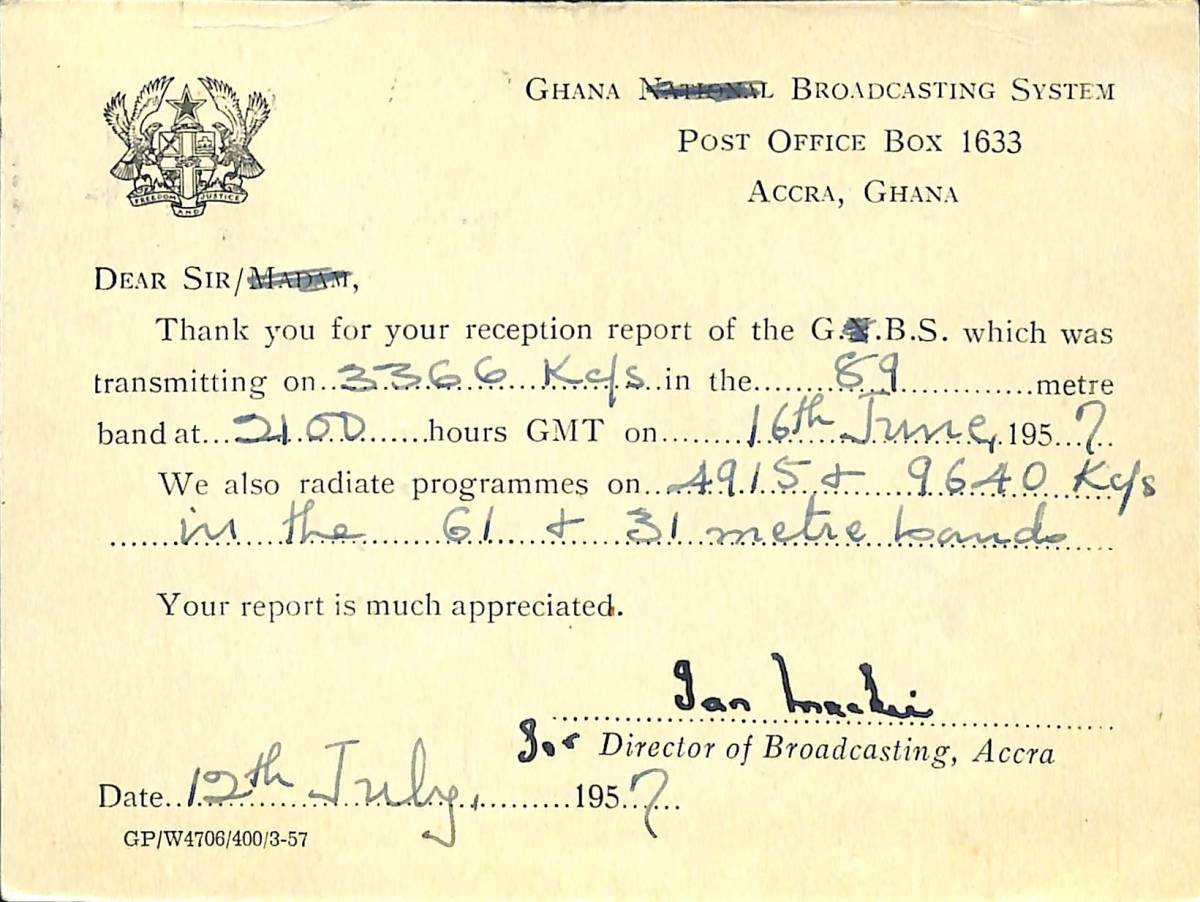 FREEDOM AND JUSTICE
GHANA NATIONAL BROADCASTING SYSTEM
POST OFFICE BOX 1633
ACCRA, GHANA
DEAR SIR/MADAM,
Thank you for your reception report of the G.N.B.S. which was
transmitting on..3366 Kc/s..in the......89............metre
band at...2100......hours GMT on......16th June,.1957..
We also radiate programmes on..4915 + 9640 Kc/s
in the 61 + 31 metre bands
Your report is much appreciated.
Ian Mackie
For Director of Broadcasting, Accra
Date..12th July,.........1957...
GP/W4706/400/3-57